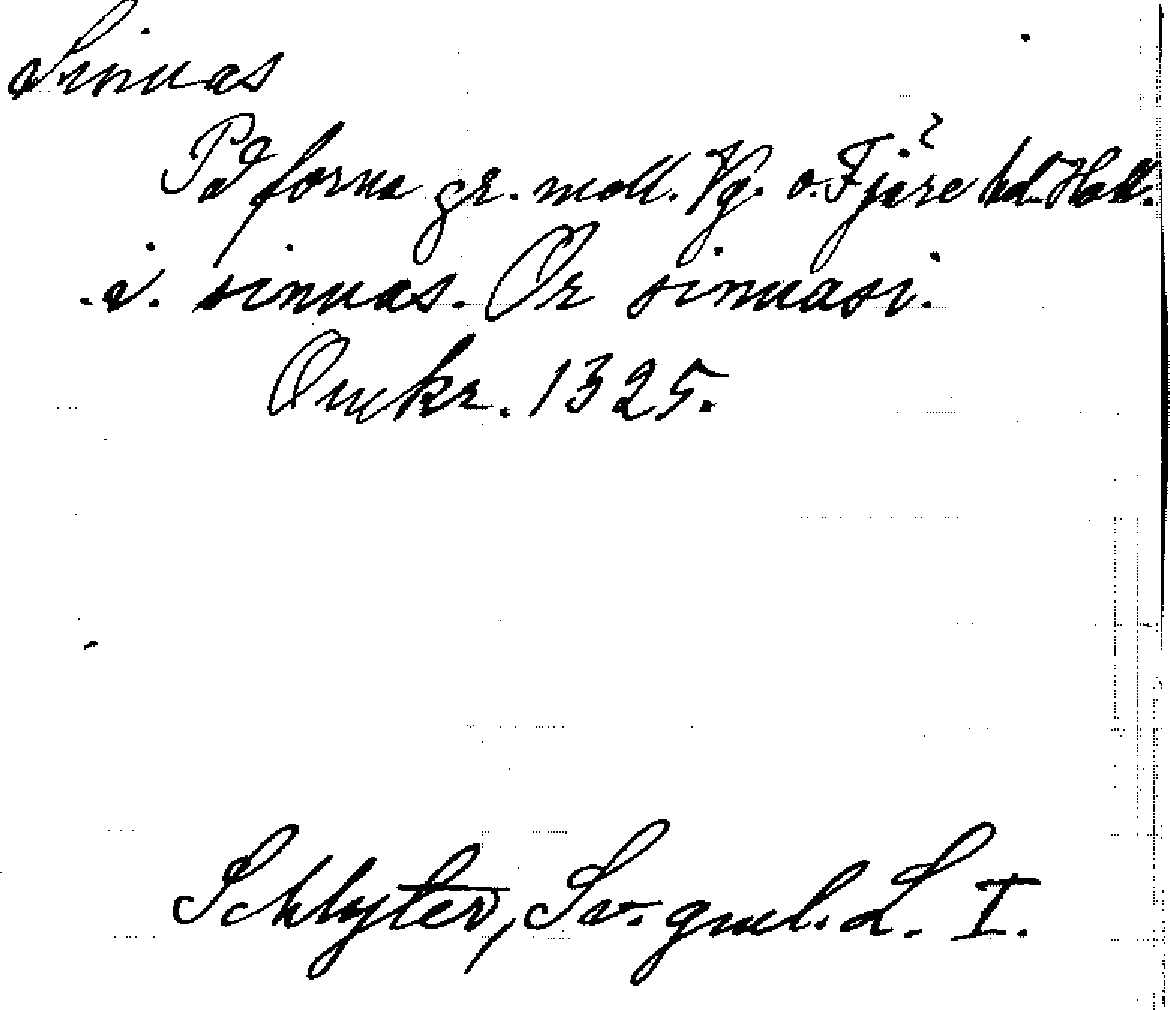 Sinnas
På forna gr. mell. Vg. o. Fjäre hd. Hall.
i. sinnas. Or sinnasi.
Omkr. 1325.
Schlyter, Sv. gml. L. I.